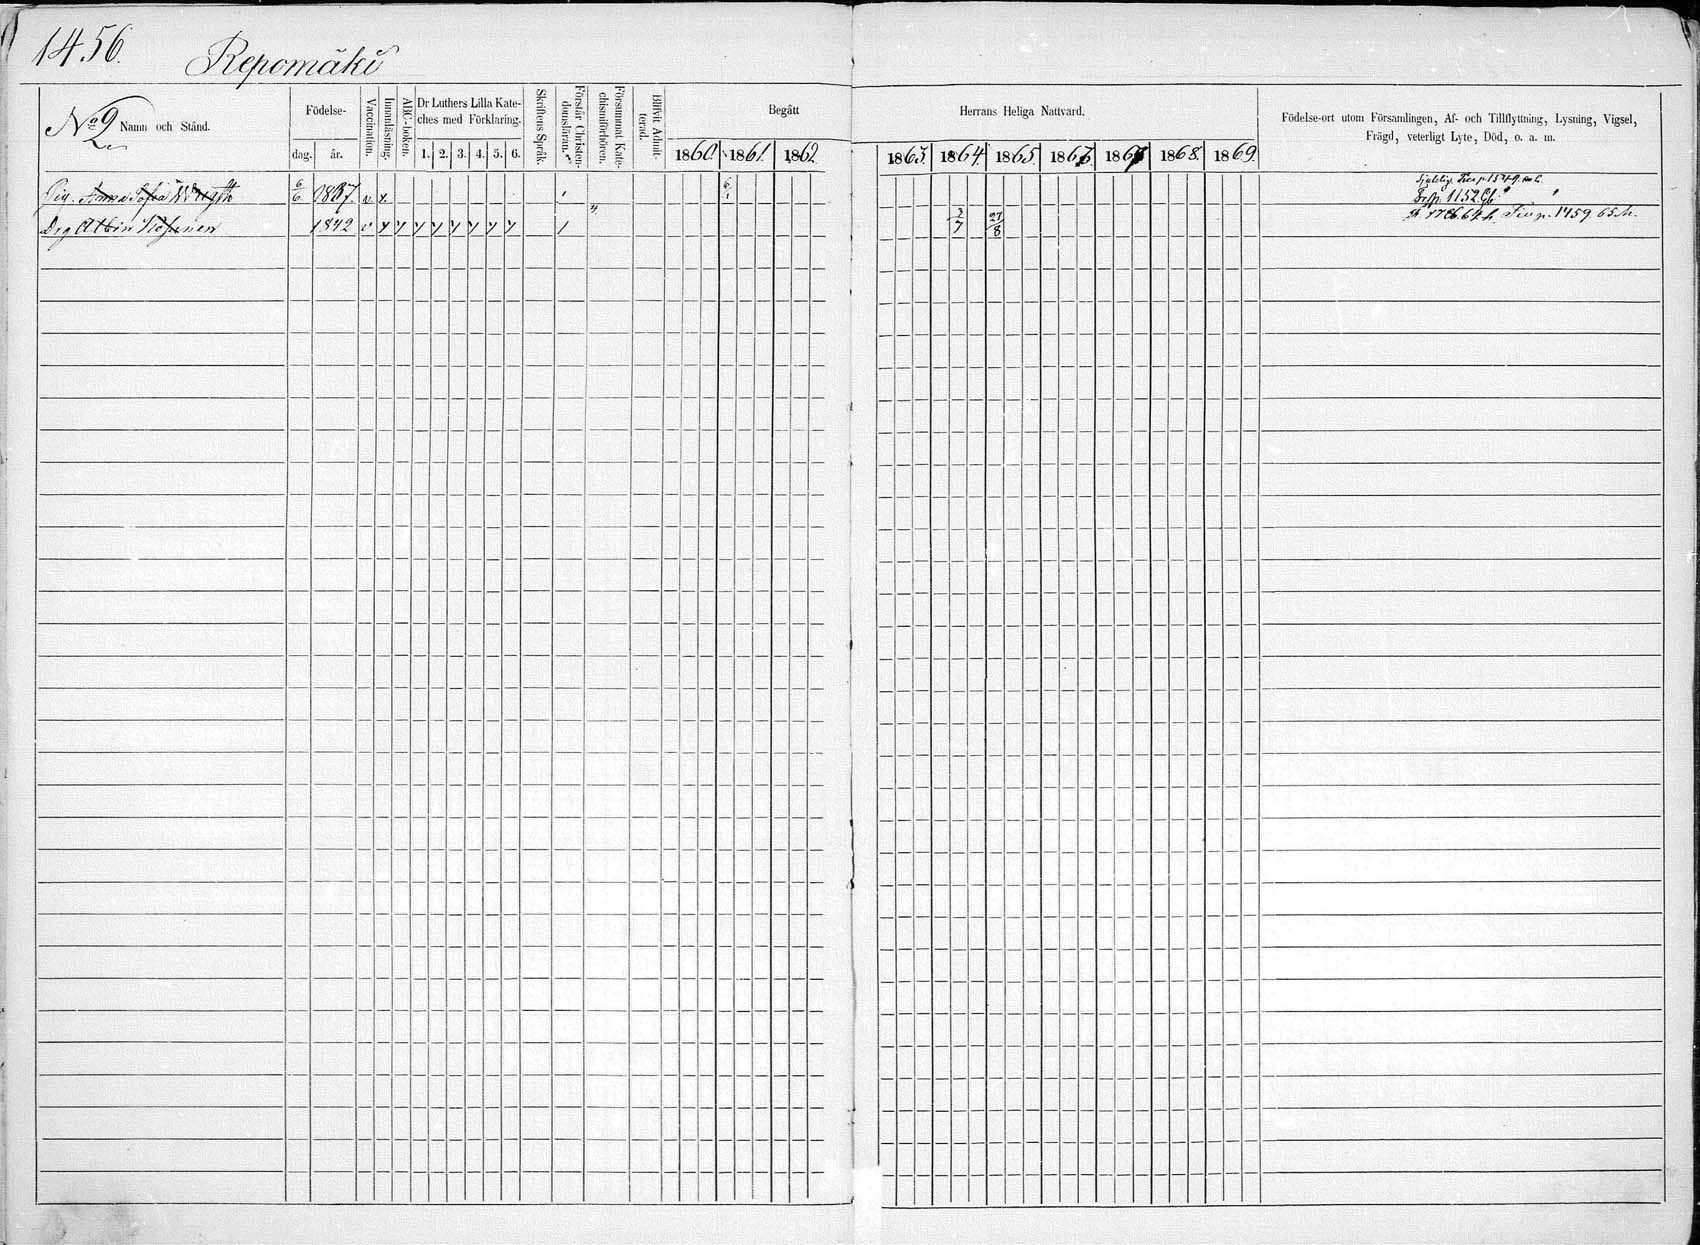 1456.
Repomäki
No 9
2
Namn och Stånd.
Födelse-
dag. år.
Vaccination.
Innanläsning.
ABC-boken.
Dr Luthers Lilla Kate-
ches med Förklaring.
1. 2. 3. 4. 5. 6.
Skriftens Språk.
Förstår Christen-
domsläran.
Försummat Kate-
chismiförhören.
Blifvit Admit-
terad.
Begått
1860. 1861. 1862.
Herrans Heliga Nattvard.
1863. 1864. 1865. 1866 1867 1868. 1869.
Födelse-ort utom Församlingen, Af- och Tillflyttning, Lysning, Vigsel,
Frägd, veterligt Lyte, Död, o. a. m.
Pig. Anna Sofia 6/6 1837. v x 6/1
Drg Albin 1842 v 2/7 27/8 1459 65.